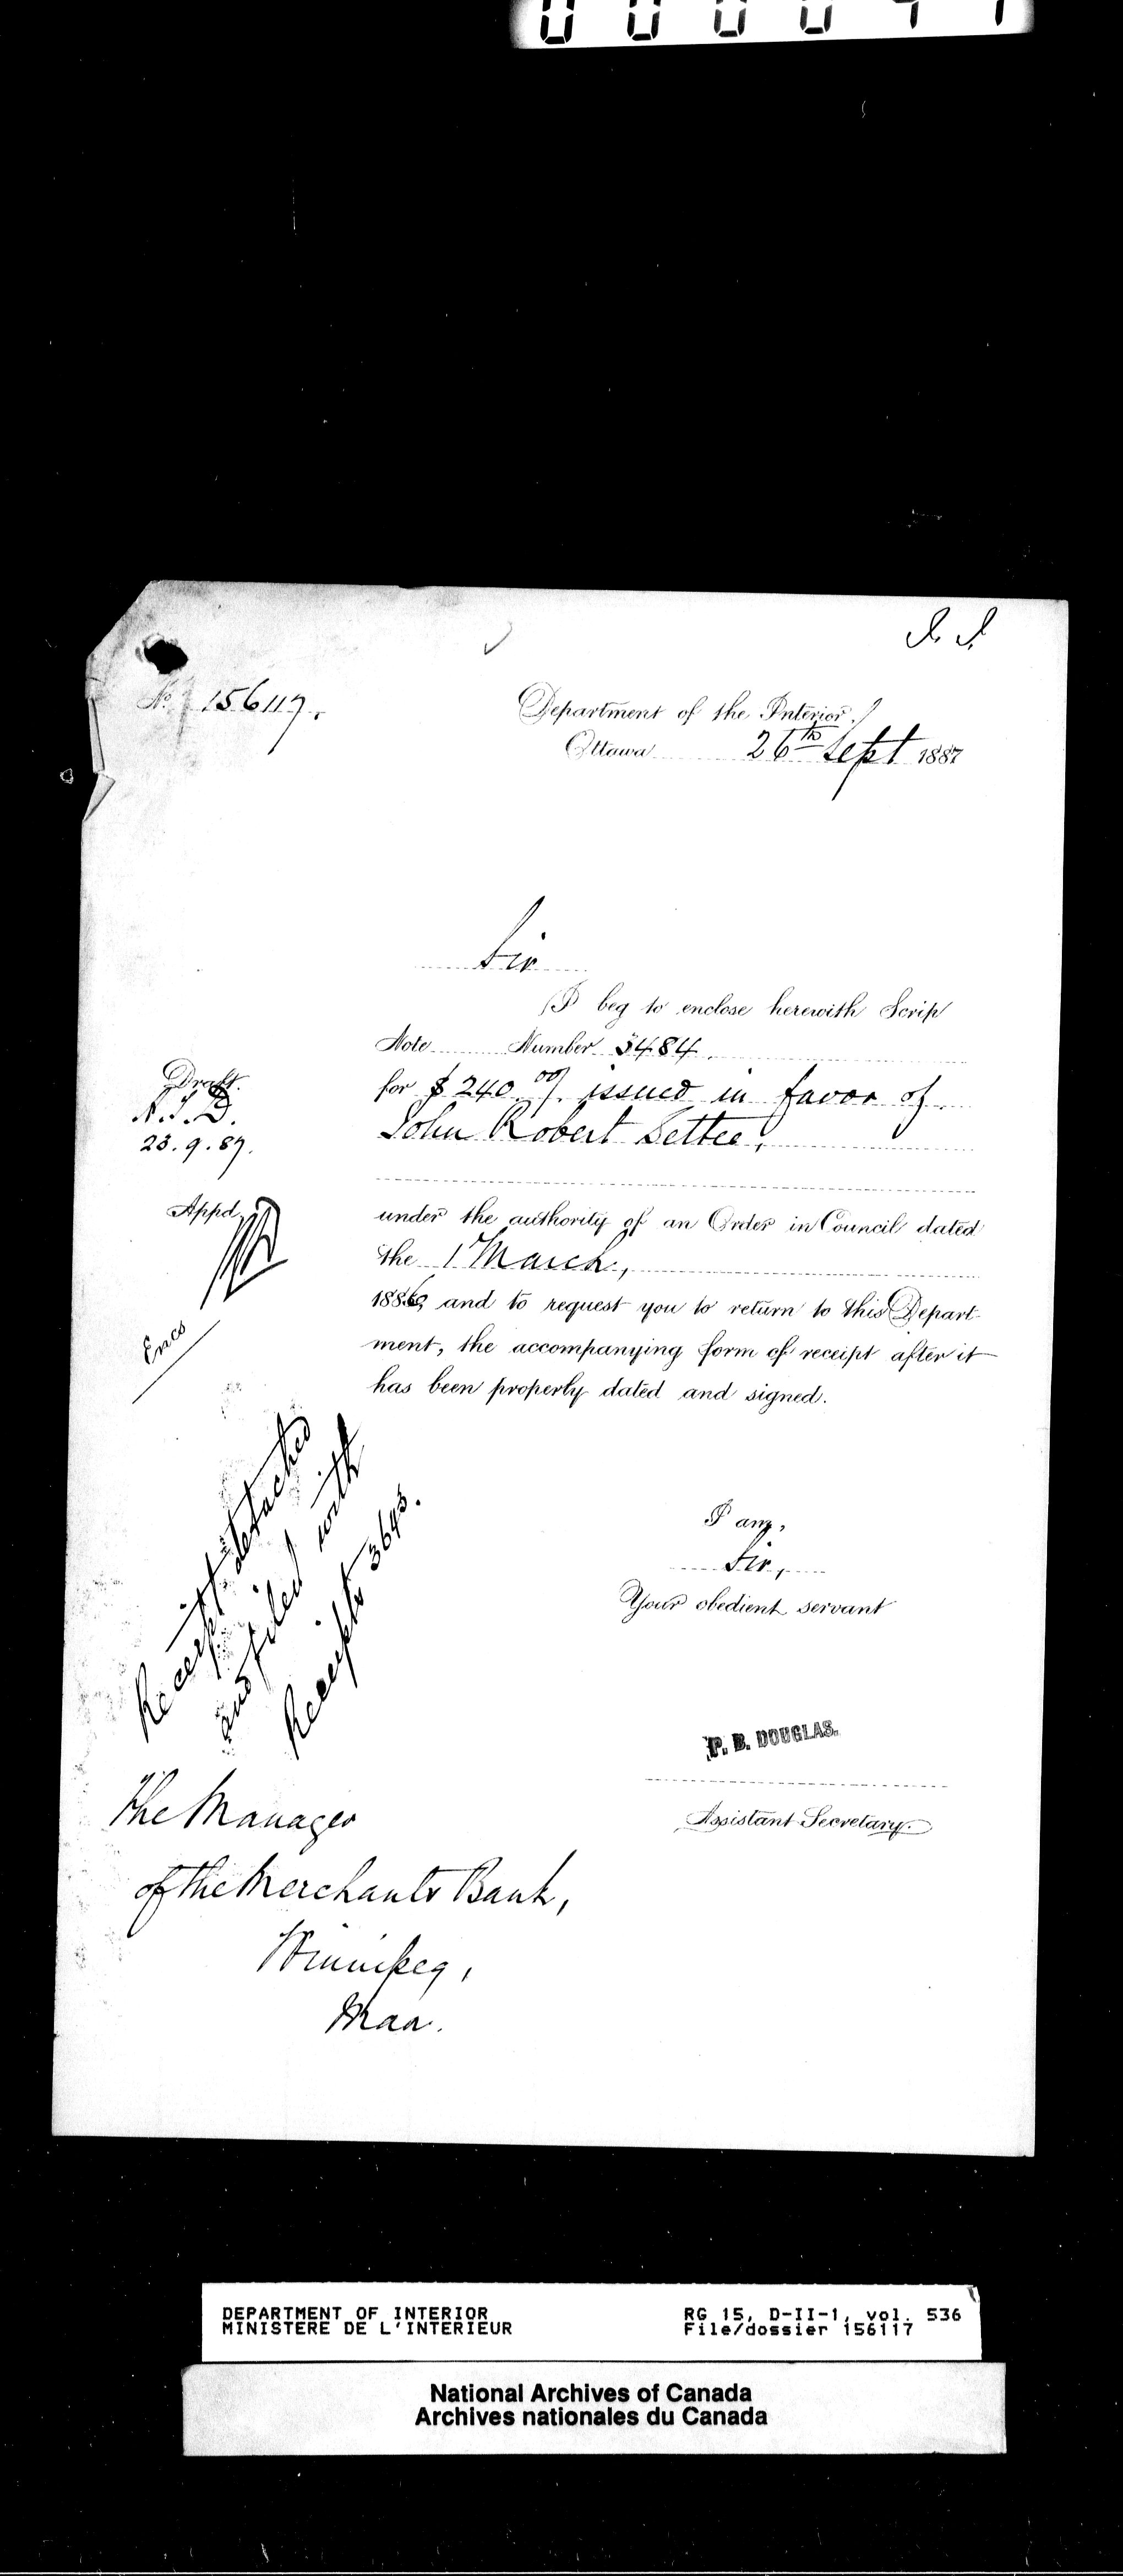 No. 156117.
Department of the Interior.
Ottawa 26th Sept 1887
Sir
I beg to enclose herewith Scrip
Note Number 5484.
for $240.00/. issued in favor of
John Robert Settee,
under the authority of an Order in Council dated
the 1 March,
1886, and to request you to return to this Depart-
ment, the accompanying form of receipt after it
has been properly dated and signed.
Draft.
23.9.87.
Appd
Encs
Receipt detached
and filed with
Receipts 3643.
I am,
Sir,
Your obedient servant
P. B. DOUGLAS.
Assistant Secretary.
The Manager
of the Merchants Bank,
Winnipeg,
Man.
DEPARTMENT OF INTERIOR
MINISTERE DE L'INTERIEUR
RG 15, D-II-1, vol. 536
File/dossier 156117
National Archives of Canada
Archives nationales du Canada